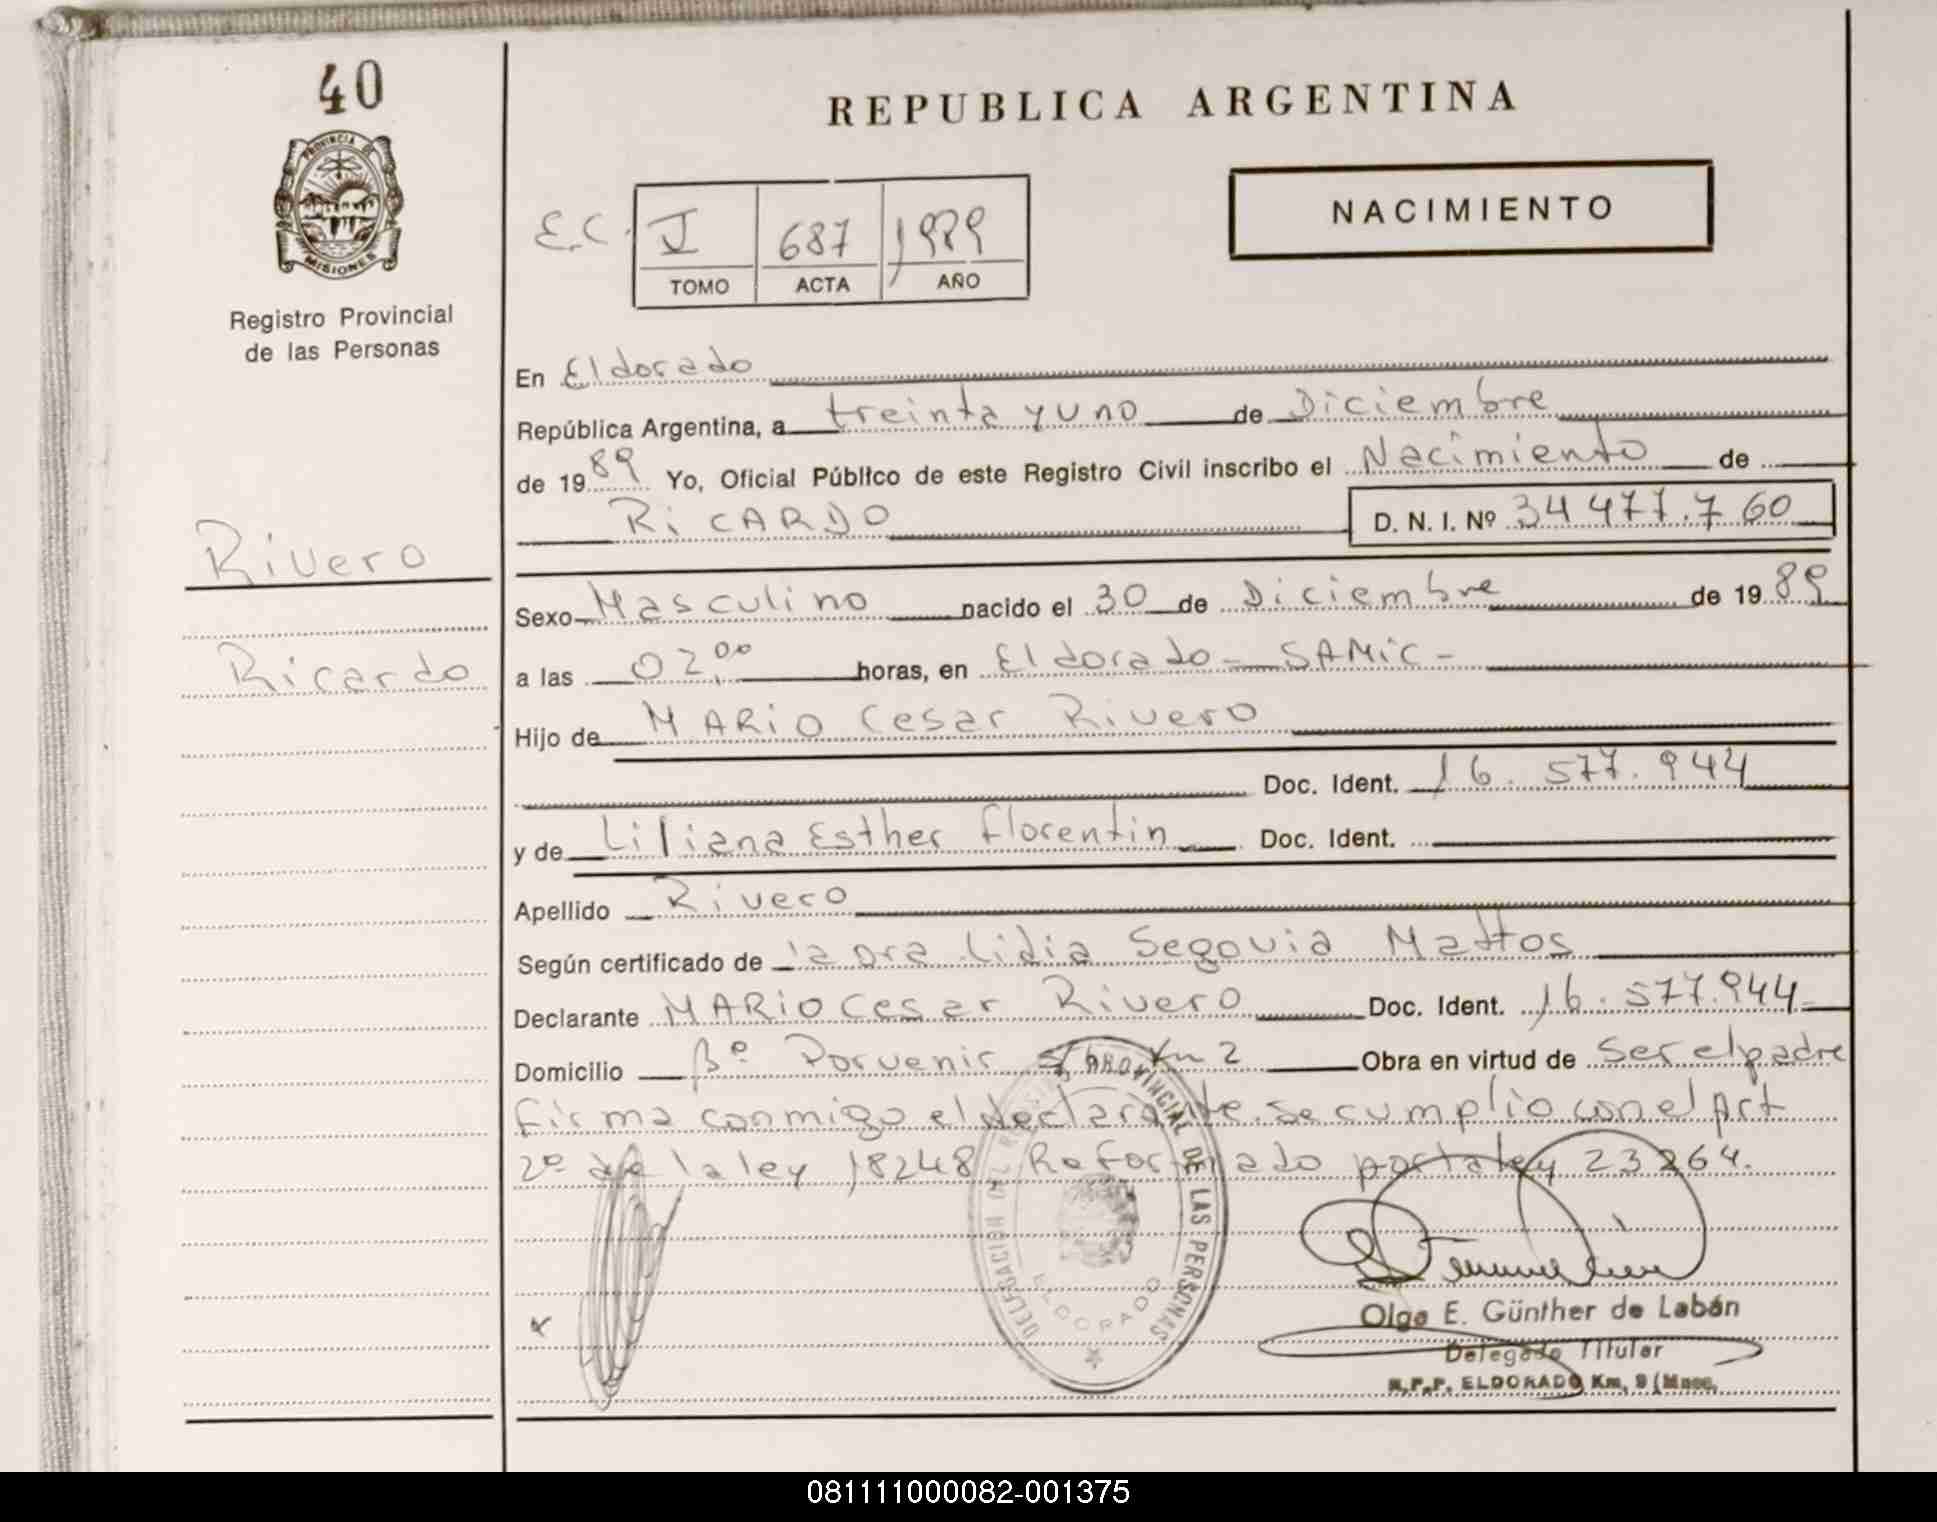 40
PROVINCIA DE
MISIONES
Registro Provincial
de las Personas
REPUBLICA ARGENTINA
NACIMIENTO
E.C. I 687 1989
TOMO ACTA AÑO
En Eldorado
República Argentina, a treinta y uno de Diciembre
de 1989 Yo, Oficial Público de este Registro Civil inscribo el Nacimiento de
RiCARDO D. N. I. Nº 34 477.760
Rivero
Ricardo
Sexo Masculino nacido el 30 de Diciembre de 1989
a las 02,00 horas, en Eldorado - SAMiC -
Hijo de MARiO Cesar Rivero
Doc. Ident. 16.577.944
y de Liliana Esther Florentin Doc. Ident.
Apellido Rivero
Según certificado de la Dra Lidia Segovia Mattos
Declarante MARiO Cesar Rivero Doc. Ident. 16.577.944
Domicilio Bº Porvenir Km 2 Obra en virtud de ser el padre
firma conmigo el declarante. se cumplio con el Art
2º de la ley 18248 Reformado por la ley 23264.
REGISTRO PROVINCIAL DE LAS PERSONAS
DELEGACION
ELDORADO
Olga E. Günther de Labán
Delegado Titular
R.P.P. ELDORADO Km. 9 (Mnes.
081111000082-001375